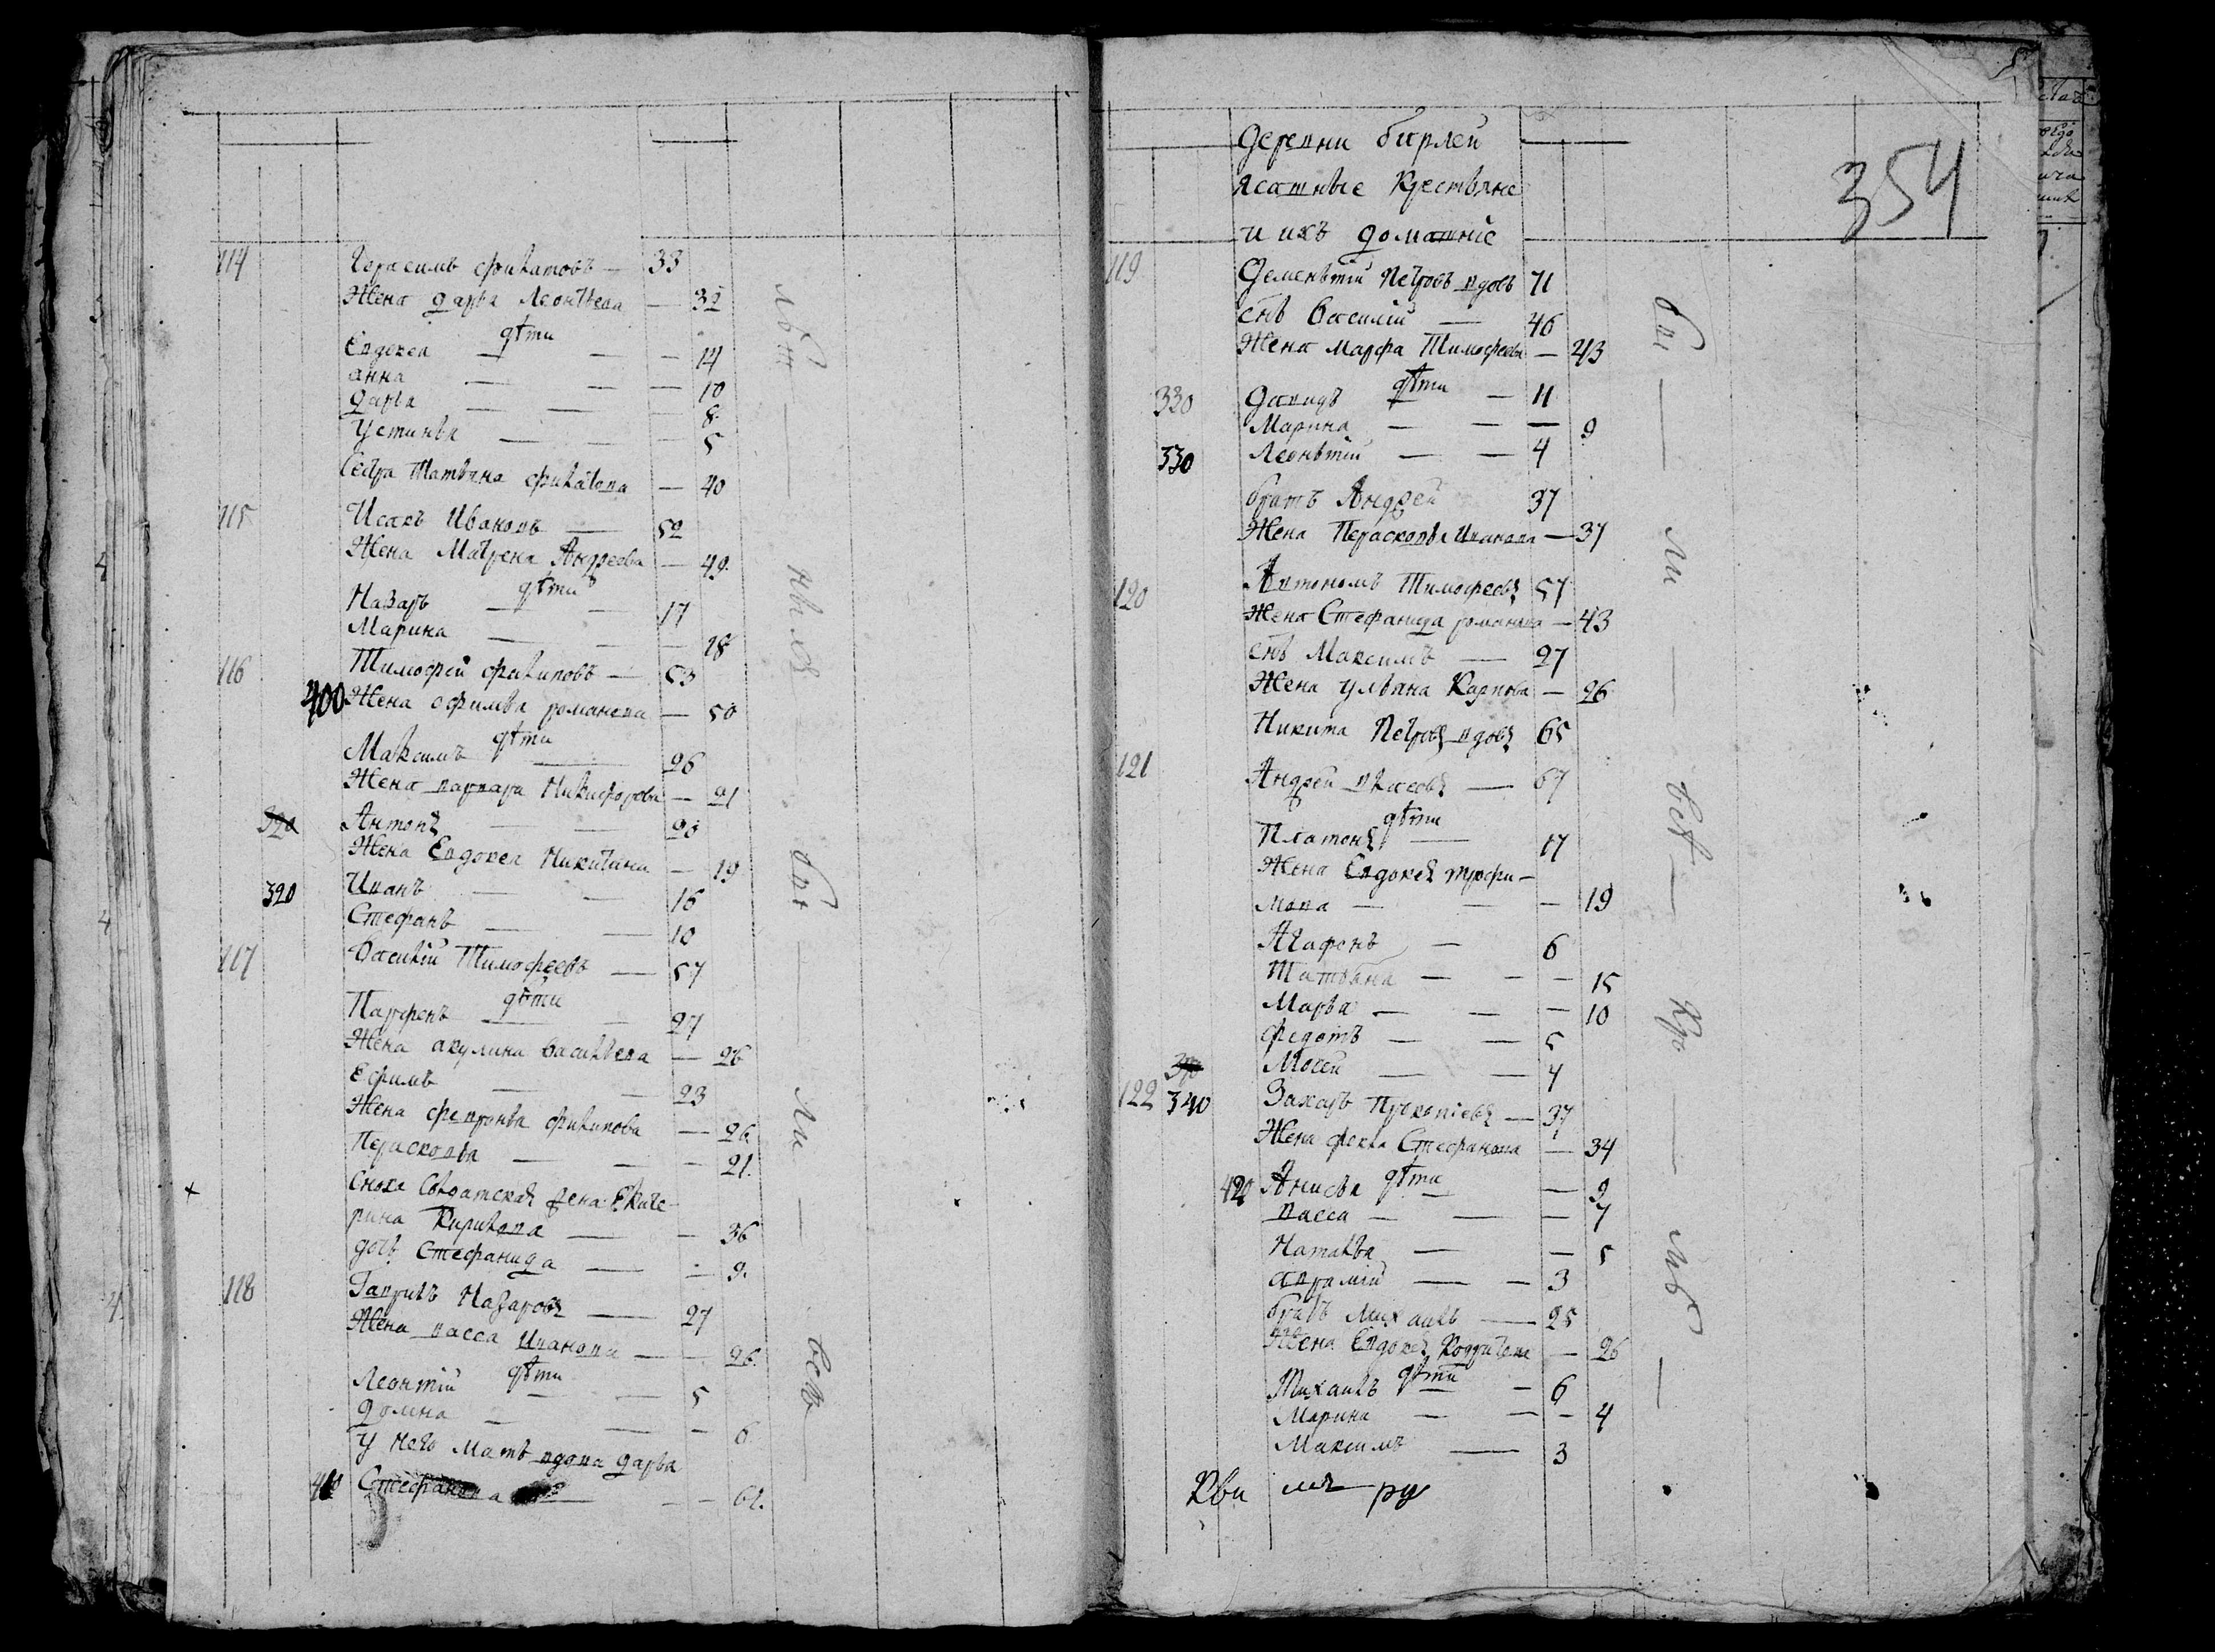 114 Герасимъ филатовъ — 33
Жена дарья Леонтьева — 32
дѣти
Евдокея — 14
анна — 10
дарья — 8
Устинья — 5
Сестра Татьяна филатова — 40
115 Исакъ Ивановъ — 52
Жена Матрена Андреева — 49
дѣти
Назаръ — 17
Марина — 18
116 Тимофей филиповъ — 53
400 Жена офимья романова — 50
дѣти
Максимъ — 26
Жена варвара Никифорова — 21
320 Антонъ — 20
Жена Евдокея Никитина — 19
320 Иванъ — 16
Стефанъ — 10
117 Василий Тимофеевъ — 57
дѣти
Парфенъ — 27
Жена акулина васильева — 26
Ефимъ — 23
Жена февронья филипова — 26
Парасковья — 21
Сноха Солдатская жена Екате-
рина Кирилова — 36
дочь Стефанида — 9
118 Гаврилъ Назаровъ — 27
Жена васса Иванова — 26
дѣти
Леонтий — 5
домна — 6
у него мать вдова дарья
410 Стефанова — 61
354
деревни бирлей
ясашные крестьяне
и ихъ домашние
119 Дементий Петровъ вдовъ 71
сынъ Василий — 46
Жена марфа Тимофеева — 43
дѣти
330 давидъ — 11
Марина — 9
330 Леонтий — 4
братъ Андрей 37
Жена Парасковья Иванова — 37
120 Автономъ Тимофеевъ 57
Жена Стефанида романова — 43
сынъ Максимъ — 27
Жена ульяна Карпова — 26
Никита Петровъ вдовъ 65
121 Андрей власовъ — 67
дѣти
Платонъ — 17
Жена Евдокея трофи-
мова — 19
Агафонъ — 6
Татьяна — 15
Марья — 10
федотъ — 5
Мосей — 4
122 340 Захаръ Прокопиевъ — 37
Жена фекла Стефанова — 34
дѣти
420 Анисья — 9
васса — 7
Наталья — 5
аврамий — 3
братъ Михаилъ — 25
Жена Евдокея Кондратьева — 26
дѣти
Михаилъ — 6
Марина — 4
Максимъ — 3